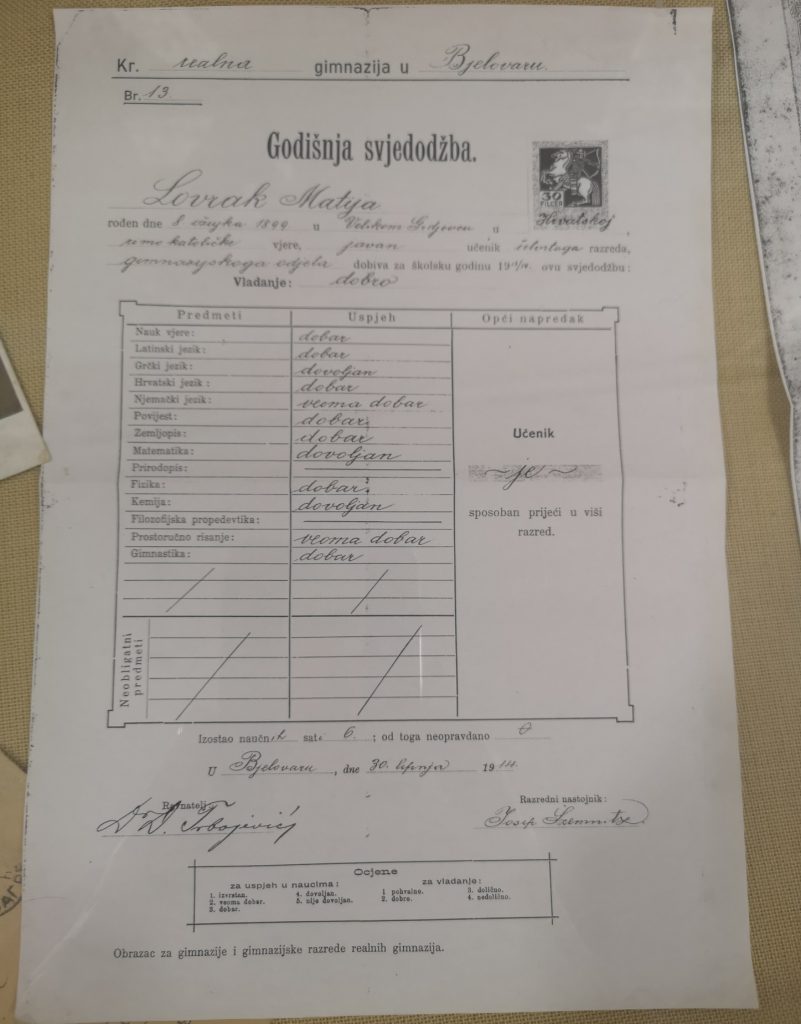 Kr. realna gimnazija u Bjelovaru.
Br. 13.
Godišnja svjedodžba.
30
FILLER
Lovrak Matija
rođen dne 8 ožujka 1899 u Velikom Grdjevcu u Hrvatskoj,
rimo katoličke vjere, javan učenik četvrtoga razreda,
gimnazijskoga odjela dobiva za školsku godinu 1913/14. ovu svjedodžbu:
Vladanje: dobro
Predmeti Uspjeh Opći napredak
Nauk vjere: dobar
Latinski jezik: dobar
Grčki jezik: dovoljan
Hrvatski jezik: dobar
Njemački jezik: veoma dobar
Povijest: dobar
Zemljopis: dobar
Matematika: dovoljan
Prirodopis:
Fizika: dobar
Kemija: dovoljan
Filozofijska propedevtika:
Prostoručno risanje: veoma dobar
Gimnastika: dobar
Učenik
je
sposoban prijeći u viši
razred.
Neobligatni
predmeti
Izostao naučnih sati 6. ; od toga neopravdano 0
U Bjelovaru, dne 30. lipnja 1914.
Ravnatelj Razredni nastojnik:
Dr D. Trbojević Josip
Ocjene
za uspjeh u naucima: za vladanje:
1. izvrstan. 4. dovoljan. 1 pohvalno. 3. dolično.
2. veoma dobar. 5. nije dovoljan. 2. dobro. 4. nedolično.
3. dobar.
Obrazac za gimnazije i gimnazijske razrede realnih gimnazija.